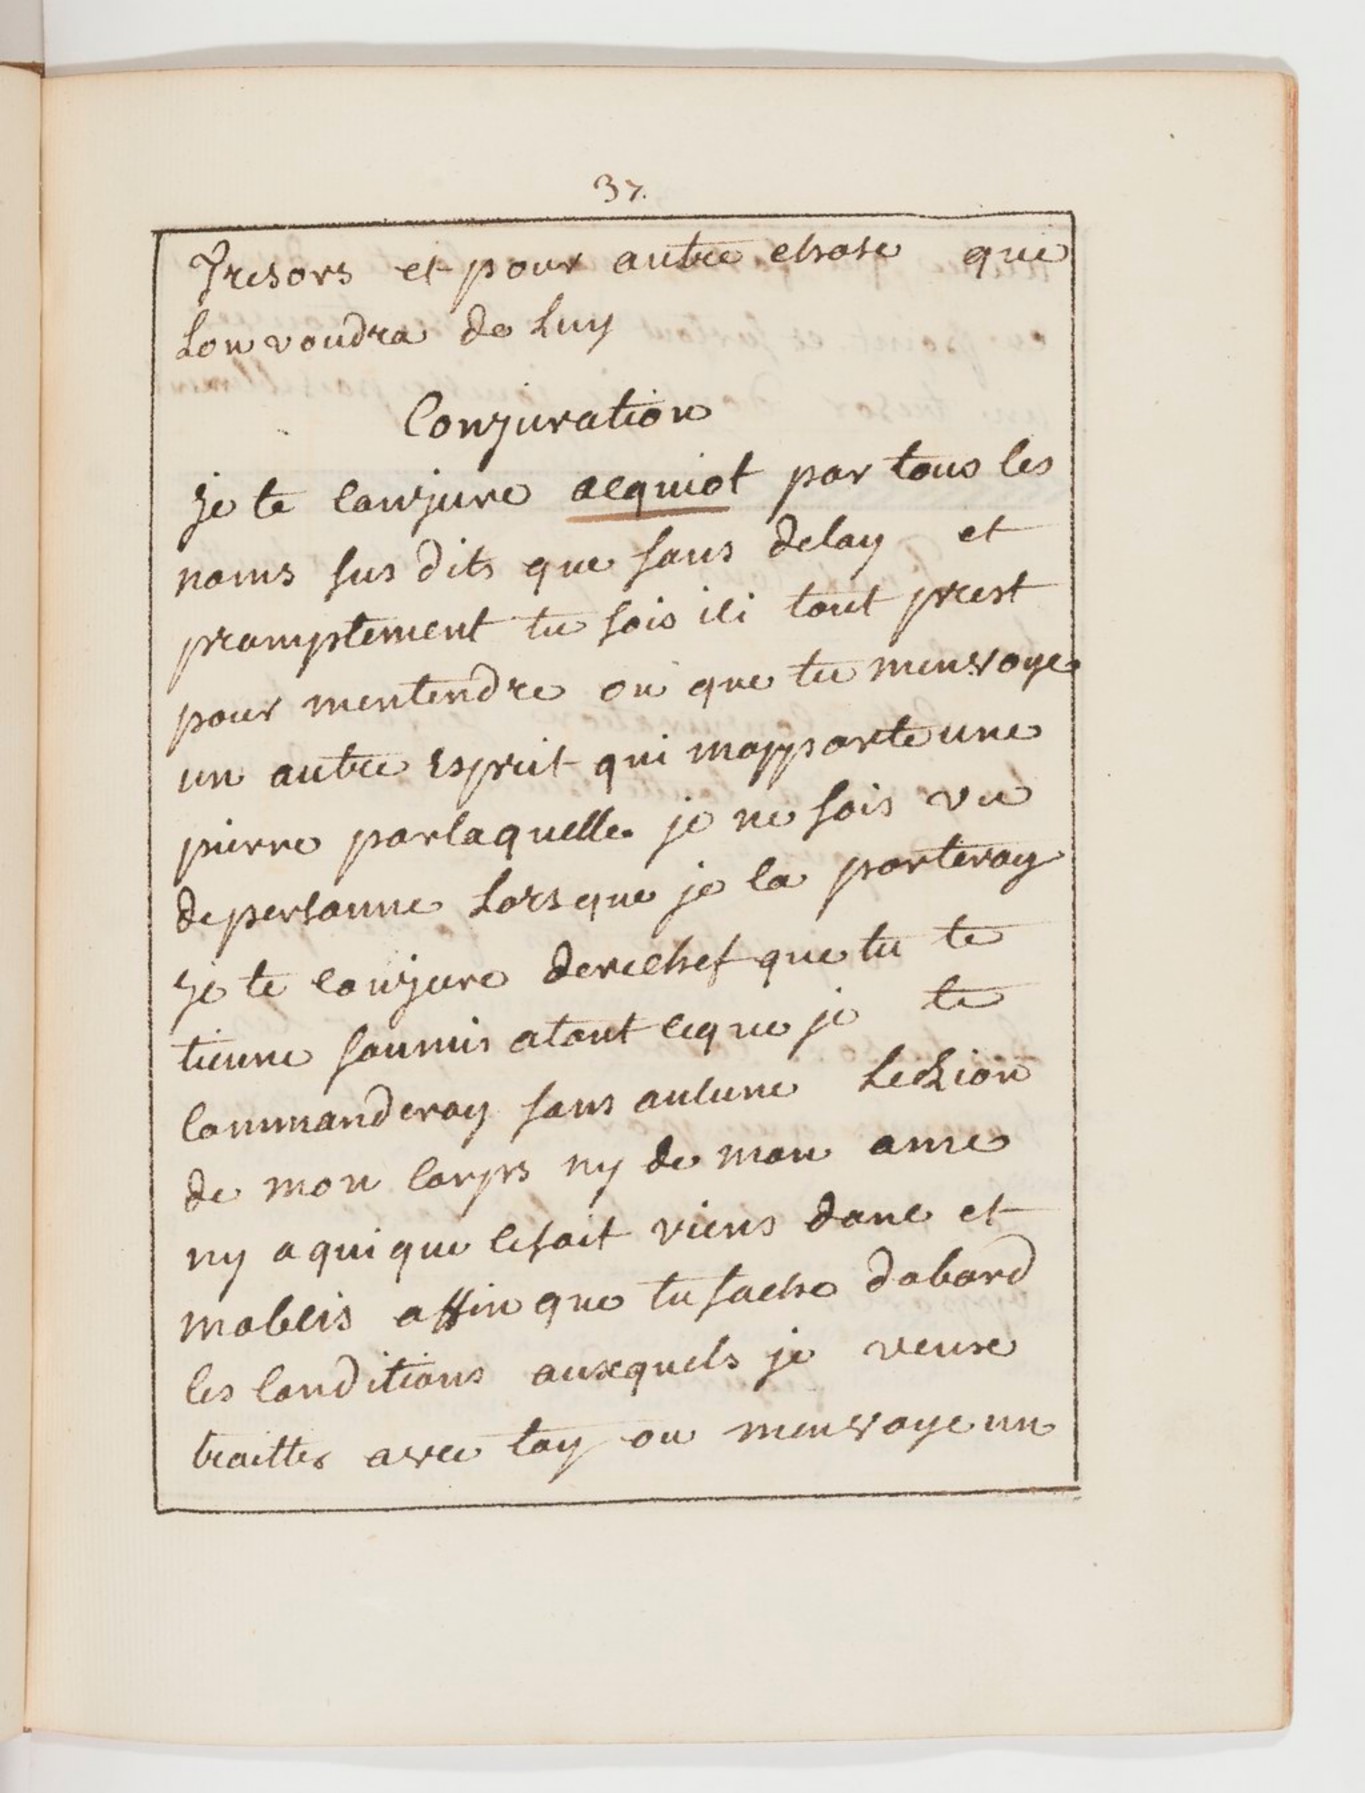 37.
Tresors et pour autre chose que
Lon voudra de Luy
Conjuration
je te conjure acquiot par tous les
noms sus dits que sans delay et
promptement tu sois ici tout prest
pour mentendre ou que tu menvoye
un autre Esprit qui mapporte une
pierre par laquelle je ne sois vu
de personne Lors que je la porteray
je te conjure derechef que tu te
tienne soumis a tout ce que je te
Commanderay sans aucune Lezion
de mon corps ny de mon ame
ny a qui que ce soit viens donc et
mobeis affin que tu sache dabord
les Conditions auxquels je veuxe
traitter avec toy ou menvoye un